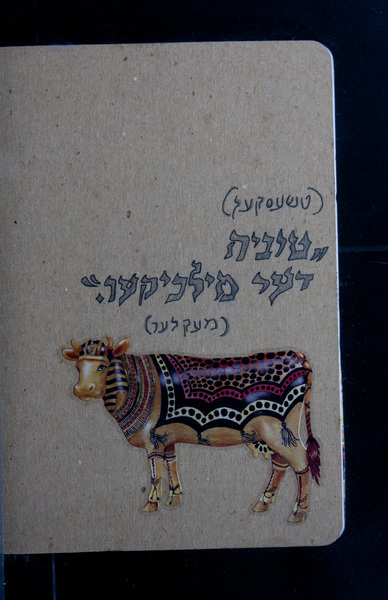 (טשעסקעל)
„טוביה
דער מילכיקער.“
(מעקלער)